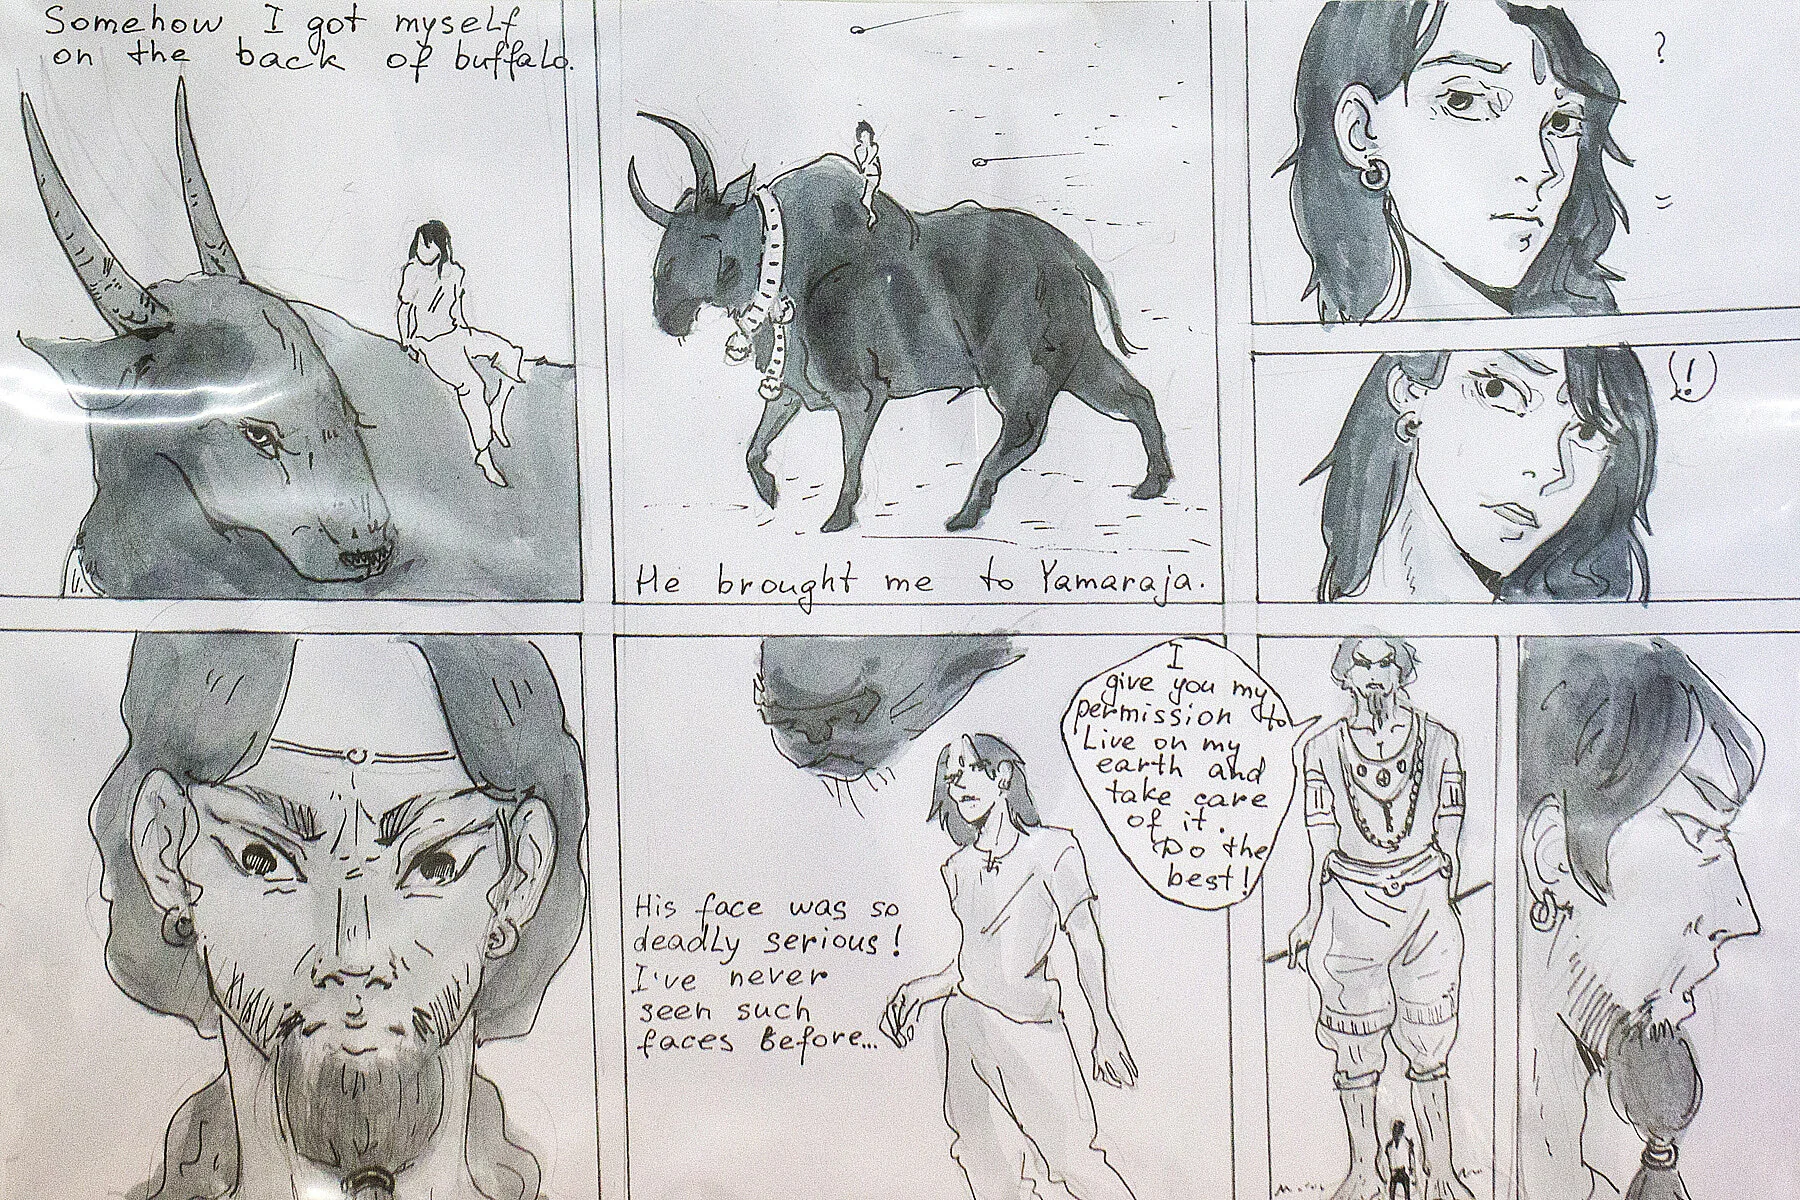 Somehow I got myself
on the back of buffalo.
He brought me to Yamaraja.
?
!
His face was so
deadly serious!
I've never
seen such
faces before...
I
give you my
permission to
Live on my
earth and
take care
of it.
Do the
best!